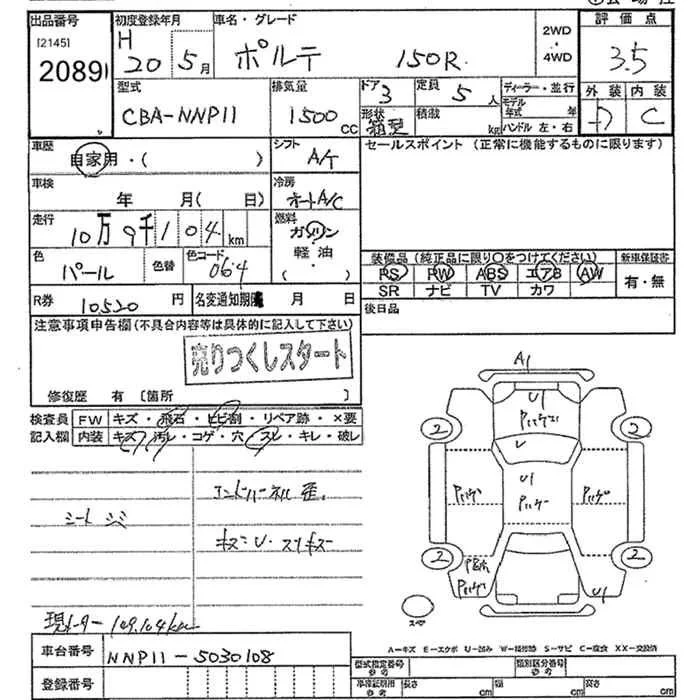 出品番号
[2145]
2089
初度登録年月
H 20 5月
車名・グレード
ポルテ 150R
2WD
・
4WD
評価点
3.5
外装 内装
C
型式
CBA-NNP11
排気量
1500 CC
ドア
3
形状
箱型
定員
5 人
積載
kg
ディーラー・並行
モデル年式 年
ハンドル 左・右
車歴
自家用・( )
シフト
A/T
セールスポイント (正常に機能するものに限ります)
車検
年 月( 日)
冷房
オートA/C
走行
10万9千104 km
燃料
ガソリン
軽油
( ・ )
色
パール
色替
色コード
064
装備品 (純正品に限り○をつけてください)
PS PW ABS エアB AW
SR ナビ TV カワ
新車保証書
有・無
R券
10520 円
名変通知期限 月 日
後日品
注意事項申告欄 (不具合内容等は具体的に記入して下さい)
売りつくしスタート
修復歴 有 〔箇所 〕
検査員
記入欄
FW キズ・飛石・ヒビ割・リペア跡・×要
内装 キズ・汚レ・コゲ・穴・スレ・キレ・破レ
シート シミ
エンドパネル 歪
キズ U・スリキズ
現メーター 109,104km
A1
U1
U
U1
2
2
2
2
U1
スペア
A-キズ E-エクボ U-凹み W-補修跡 S-サビ C-腐食 XX-交換済
車台番号
NNP11-5030108
登録番号
型式指定番号
参考
類別区分番号
参考
車検証期間
参考
長さ cm
幅 cm
高さ cm